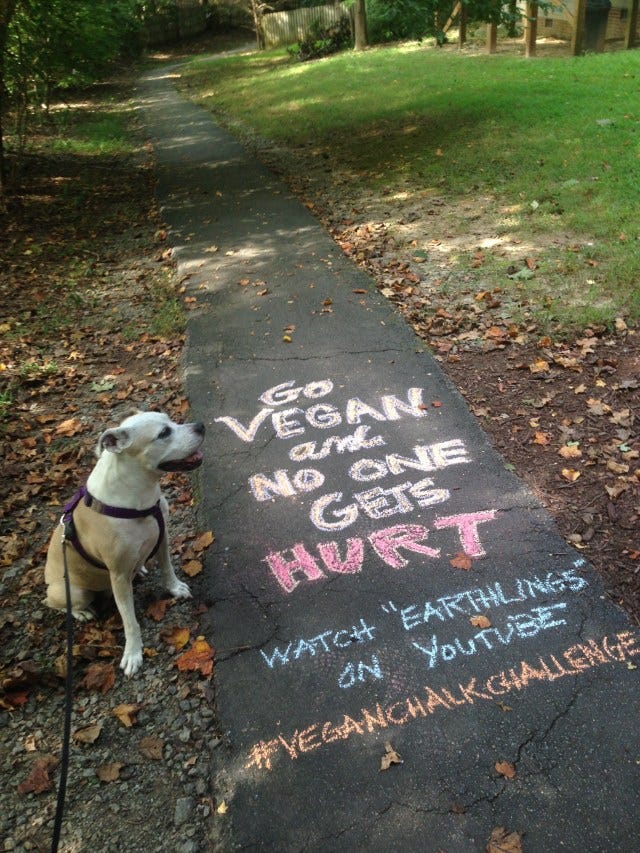 GO
VEGAN
and
NO ONE
GETS
HURT
WATCH "EARTHLINGS"
ON YOUTUBE
#VEGANCHALKCHALLENGE